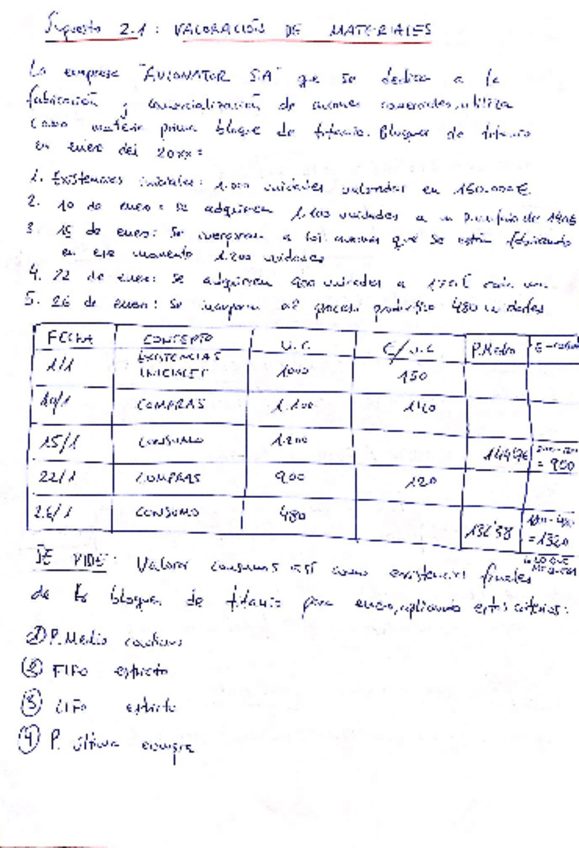 Supuesto 2.1: VALORACIÓN DE MATERIALES
La empresa "AVIONATOR S.A" que se dedica a la
fabricación y comercialización de aviones comerciales, utiliza
como materia prima bloque de titanio. Bloques de titanio
en enero del 20xx:
1. Existencias iniciales: 1.000 unidades valoradas en 150.000€
2. 10 de enero: se adquieren 1.100 unidades a un
3. 15 de enero: Se incorporan a los aviones que se están fabricando
en ese momento 1.200 unidades
4. 22 de enero: Se adquieren 900 unidades a
5. 26 de enero: Se incorporan al proceso productivo 480 unidades
FECHA CONCEPTO U.C C/U.C P.Medio
1/1 EXISTENCIAS INICIALES 1000 150
10/1 COMPRAS 1.100 140
15/1 CONSUMO 1.200 = 900
22/1 COMPRAS 900 120
26/1 CONSUMO 480 132'38 = 1320
SE PIDE: Valorar consumos así como existencias finales
de los bloques de titanio para enero, aplicando estos criterios:
① P. Medio continuo
② FIFO estricto
③ LIFO estricto
④ P. última compra